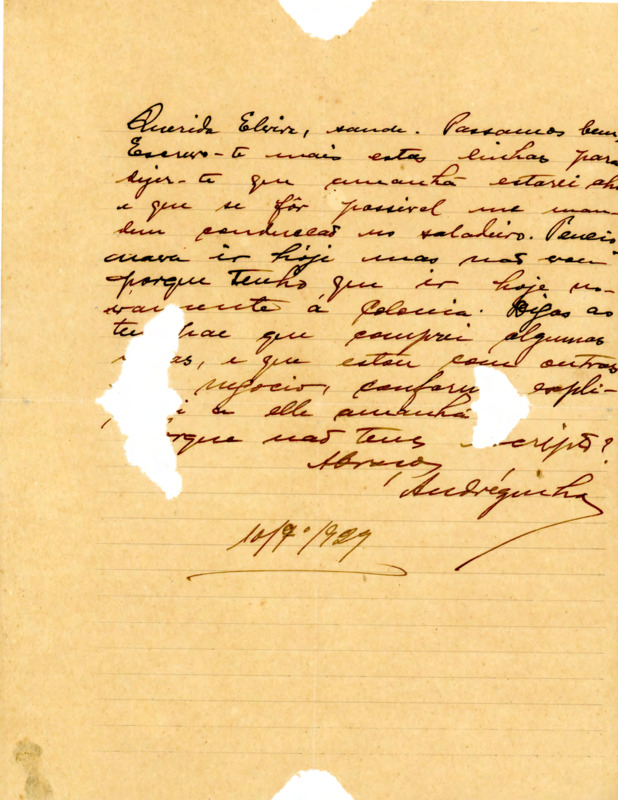 Querida Elvira, saude. Passamos bem,
Escrevo-te mais estas linhas para
dizer-te que amanhã estarei ahi
e que se fôr possivel me man-
dem conducção no saladeiro.
mava ir hoje mas não vou
porque tenho que ir hoje no-
vamente á Colonia. Digas ao
teu pae que comprei algumas
e que estou com outras
negocio, conforme expli-
a elle amanhã
não tens
Abraços
Andréginha
10/7º/929